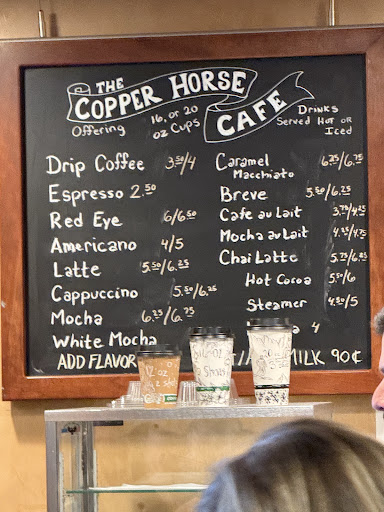 THE
COPPER HORSE
CAFE
Offering 16, or 20
oz Cups
DRINKS
Served Hot or
Iced
Drip Coffee 3.50/4
Espresso 2.50
Red Eye 6/6.50
Americano 4/5
Latte 5.50/6.25
Cappuccino 5.50/6.25
Mocha 6.25/6.75
White Mocha
ADD FLAVOR
Caramel
Macchiato 6.25/6.75
Breve 5.50/6.25
Cafe au Lait 3.75/4.25
Mocha au Lait 4.25/4.75
Chai Latte 5.75/6.25
Hot Cocoa 5.50/6
Steamer 4.50/5
4
MILK 90¢
12
oz
16 oz